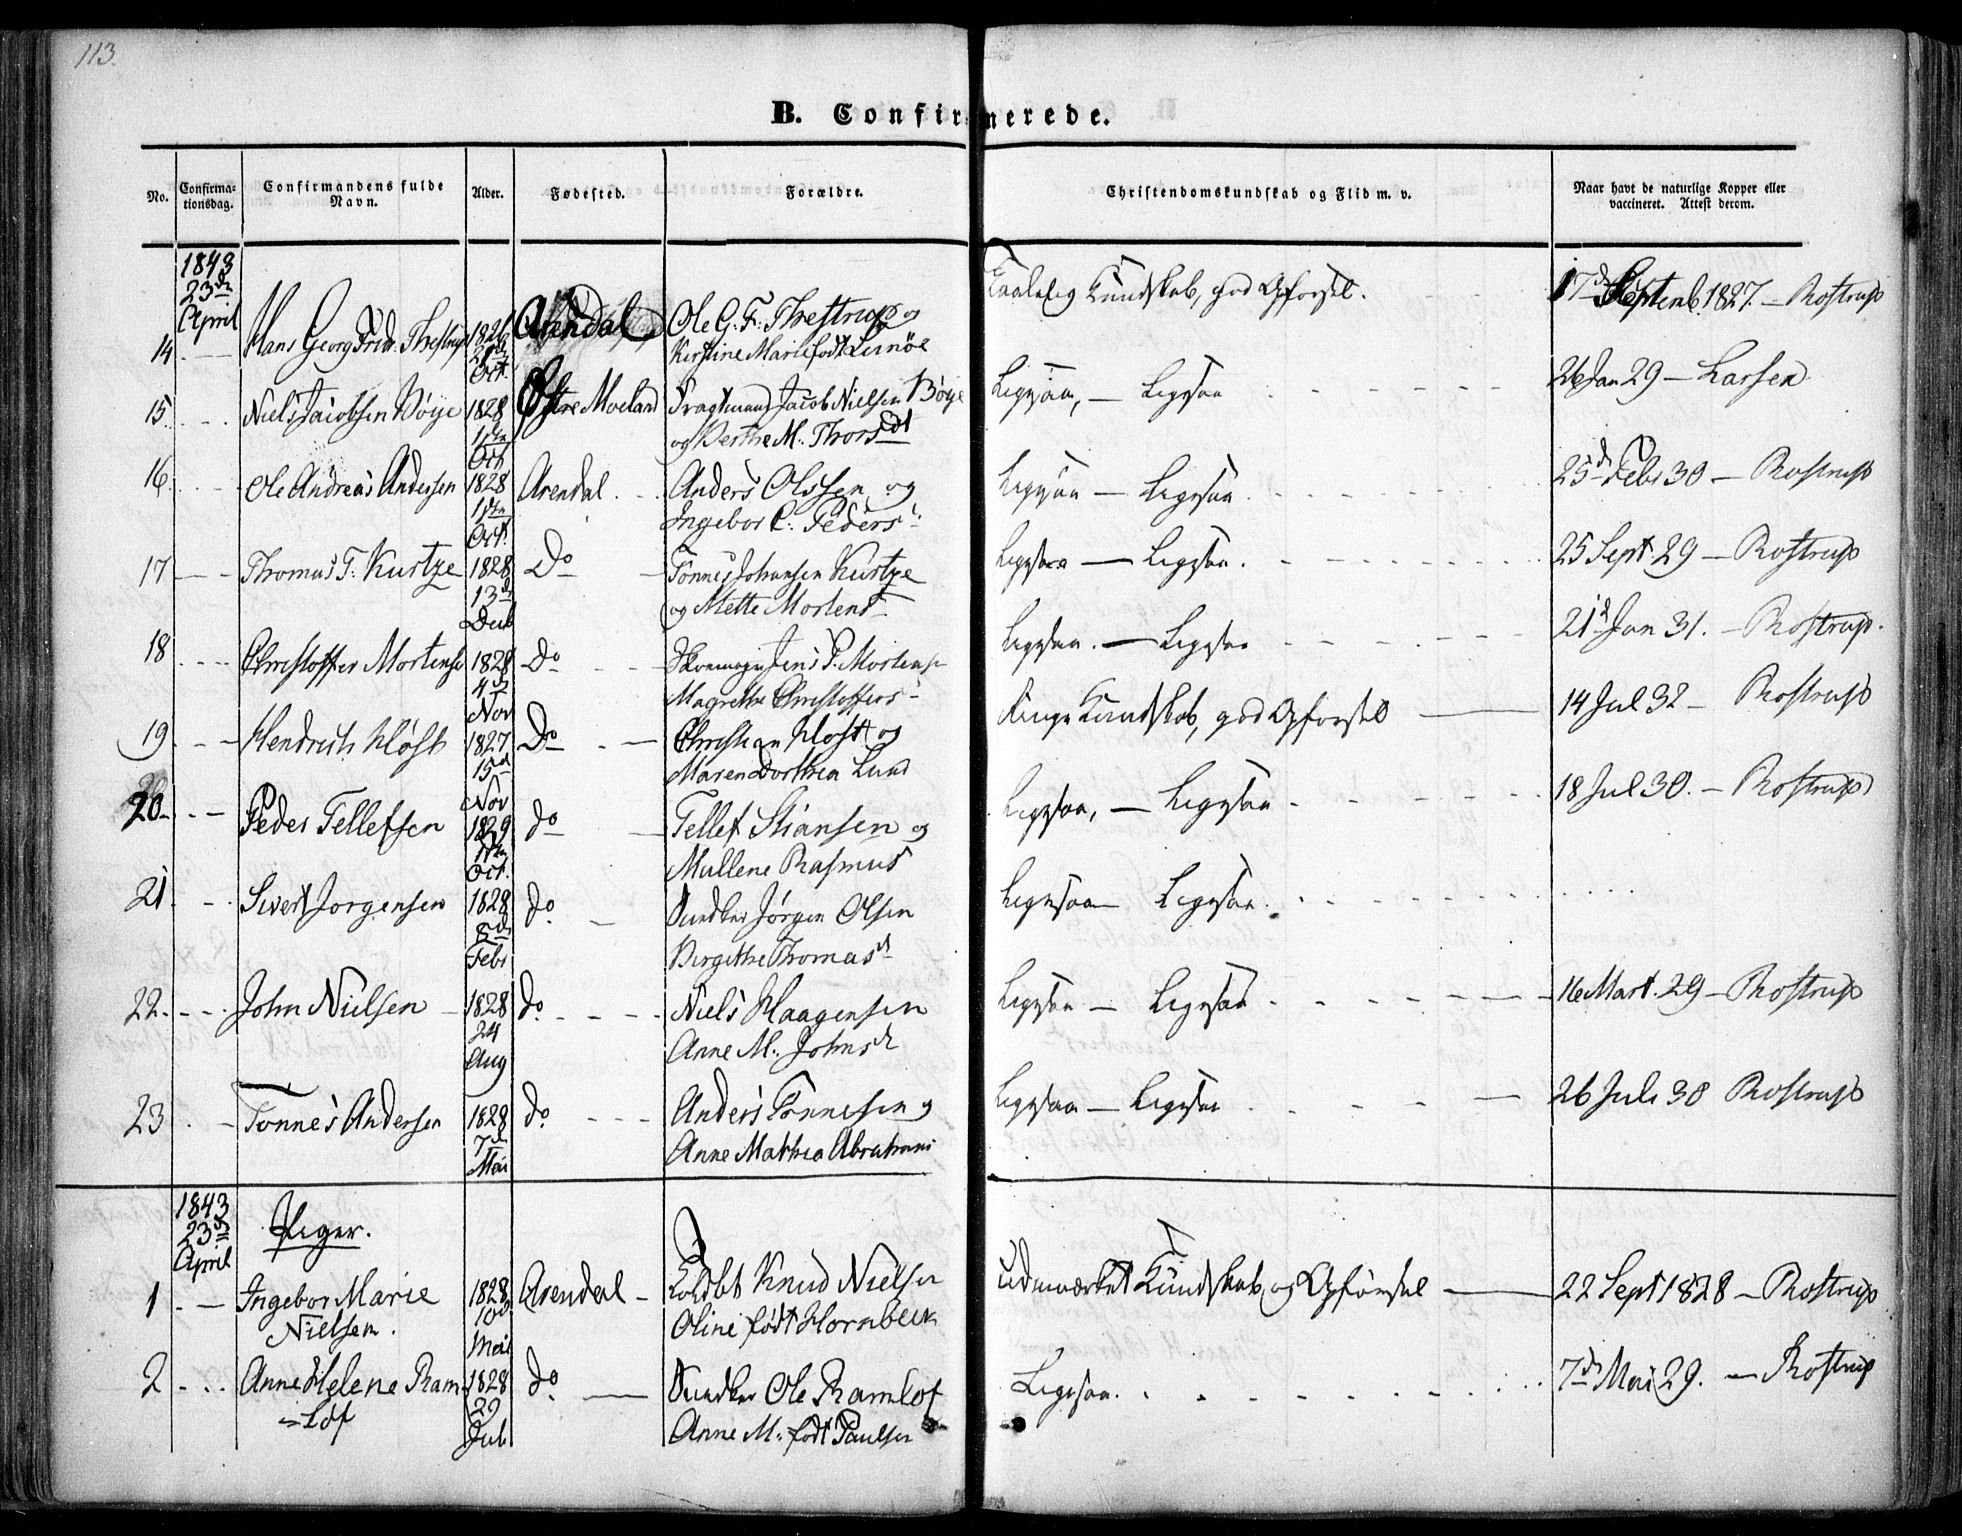 113.
B. Confirmerede.
No.
Confirma-
tionsdag.
Confirmandens fulde
Navn.
Alder.
Fødested.
Forældre.
Christendomskundskab og Flid m. v.
Naar havt de naturlige Kopper eller
vaccineret. Attest derom.
1843
23de
April
14 Hans Georg Fridr: Thestrup 1826 Arendal Ole G. F. Thestrup og Kundskab, god Opførsel. 17d Septemb. 1827. – Rostrup
Oct. Kirstine Marie født
15. Niels Jacobsen Bøye 1828 Østre Moeland Jacob Nielsen Bøye Ligesaa, – Ligesaa 26 Jan 29 – Larsen
1ste og Berthe M. Thorsdt
Oct
16. Ole Andreas Andersen 1828 Arendal. Anders Olssen og Ligesaa – Ligesaa 25d Febr 30 – Rostrup
1ste Ingebor C. Peders
Oct.
17 Thomas T. Kurtze 1828 Do Tønnes Johansen Kurtze Ligesaa – Ligesaa. 25 Sept. 29 – Rostrup
13d og Mette Mortens
18 Christoffer Mortensen 1828 Do Jens P. Mortensen Ligesaa. – Ligesaa 21d Jan 31. – Rostrup.
4d Magrethe Christoffers
Nov
19. Hendrich Kløft 1827 Do Christian Kløft og Kundskab, god Opførsel 14 Jul 32 – Rostrup
15d Maren Dorthea Lund
Nov
20 Peder Tellefsen 1829 do Tellef Stiansen og Ligesaa, – Ligesaa 18 Jul 30. – Rostrup
Oct. Mallene Rasmusd
21. Sivert Jorgensen 1828 do. Jørgen Olsen Ligesaa – Ligesaa.
8de Birgithe Thomasd
Febr
22. John Nielsen 1828 do. Niels Haagensen Ligesaa – Ligesaa 16 Mart. 29 – Rostrup
24 Anne M. Johnsd
Aug
23 Tønnes Andersen 1828 do. Anders Tønnesen og Ligesaa – Ligesaa 26 Juli 30 Rostrup
7d Anne Mathea Abrahams
Mai
1843
23de
April
Piger.
1 Ingebor Marie 1828 Arendal Knud Nielsen Udmærket Kundskab, og Opførsel 22 Sept 1828 – Rostrup
Nielsen. 10d Oline født Hornbeck
Mai
2 Anne Helene Ram- 1828 do. Ole Ramlof Ligesaa. 7d Mai 29. – Rostrup
= Lof 29 Anne M. født Paulsen
Jul